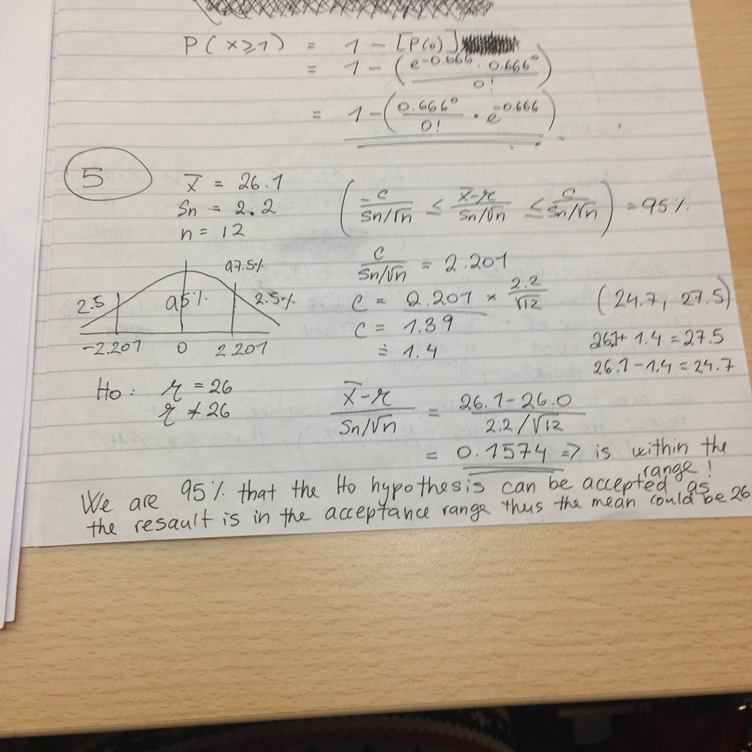 P(x≥1) = 1 - [P(0)]
= 1 - (e^-0.666 · 0.666^0 / 0!)
= 1 - (0.666^0 / 0! · e^-0.666)
5
x̄ = 26.1
Sn = 2.2
n = 12
(-c / Sn/√n ≤ x̄-μ / Sn/√n ≤ c / Sn/√n) = 95%
c / Sn/√n = 2.201
c = 2.201 * 2.2/√12
c = 1.39
≐ 1.4
(24.7, 27.5)
26.1+ 1.4 = 27.5
26.1 - 1.4 = 24.7
97.5%
2.5 95% 2.5%
-2.201 0 2.201
Ho: μ = 26
μ ≠ 26
x̄-μ / Sn/√n = 26.1-26.0 / 2.2/√12
= 0.1574 => is within the
range!
We are 95% that the Ho hypothesis can be accepted as
the resault is in the acceptance range thus the mean could be 26